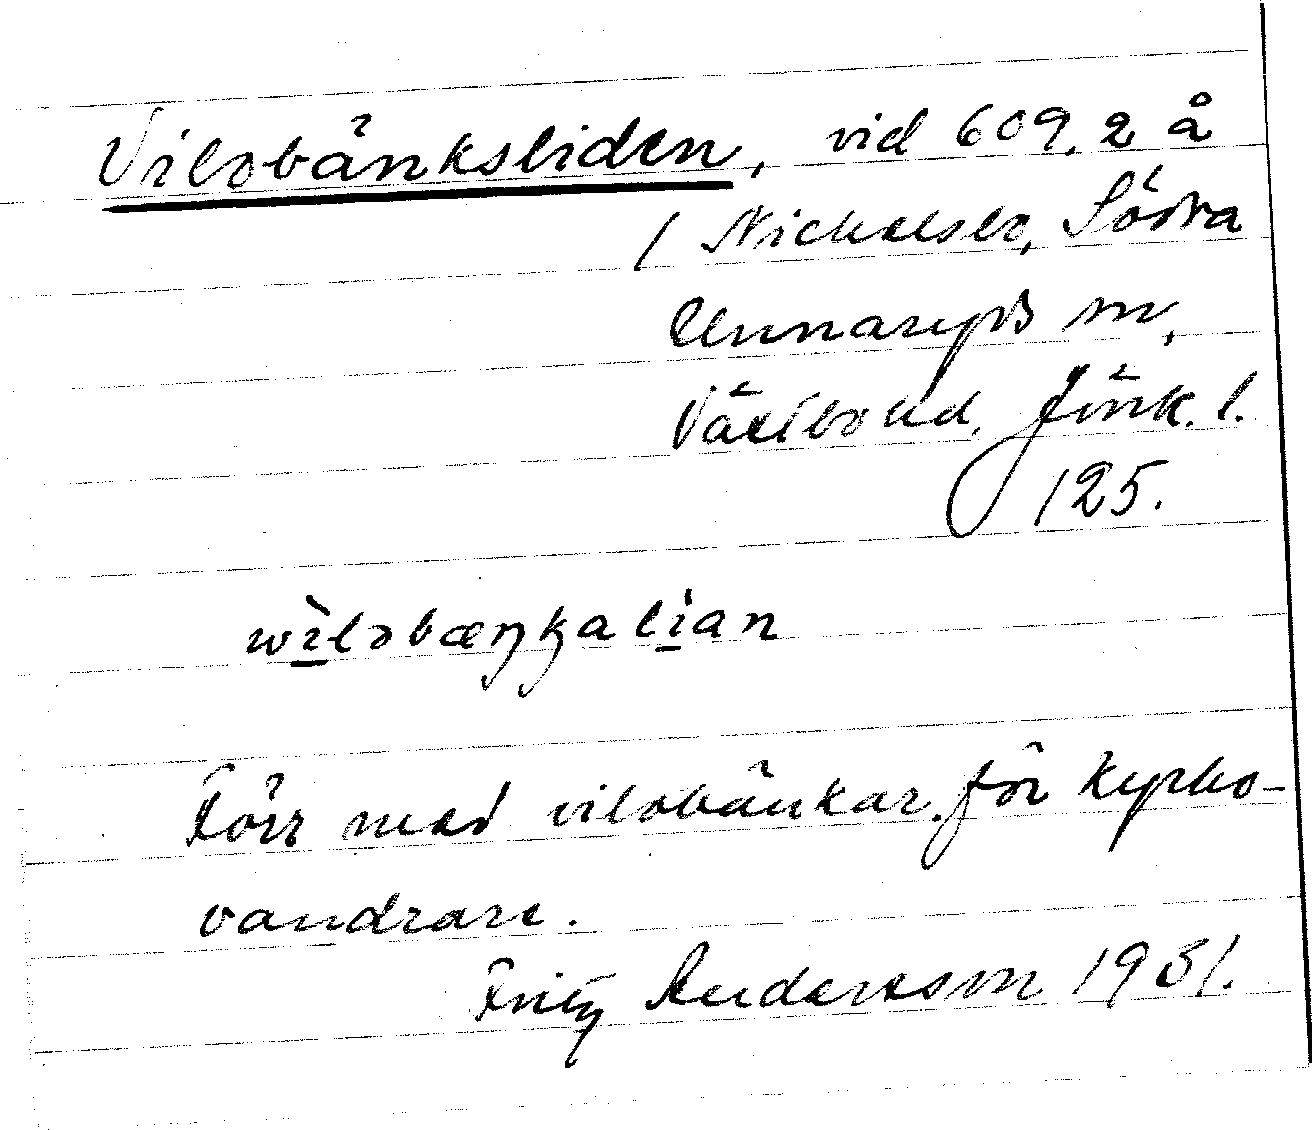 Vilobänksliden, vid 609,2 å
/ Nickelsbo, Södra
Unnaryds sn,
Västbo hd, Jönk. l.
125.
wìlobæŋkalían
Förr med vilobänkar för kyrko-
vandrare.
Fritz Andersson 1931.